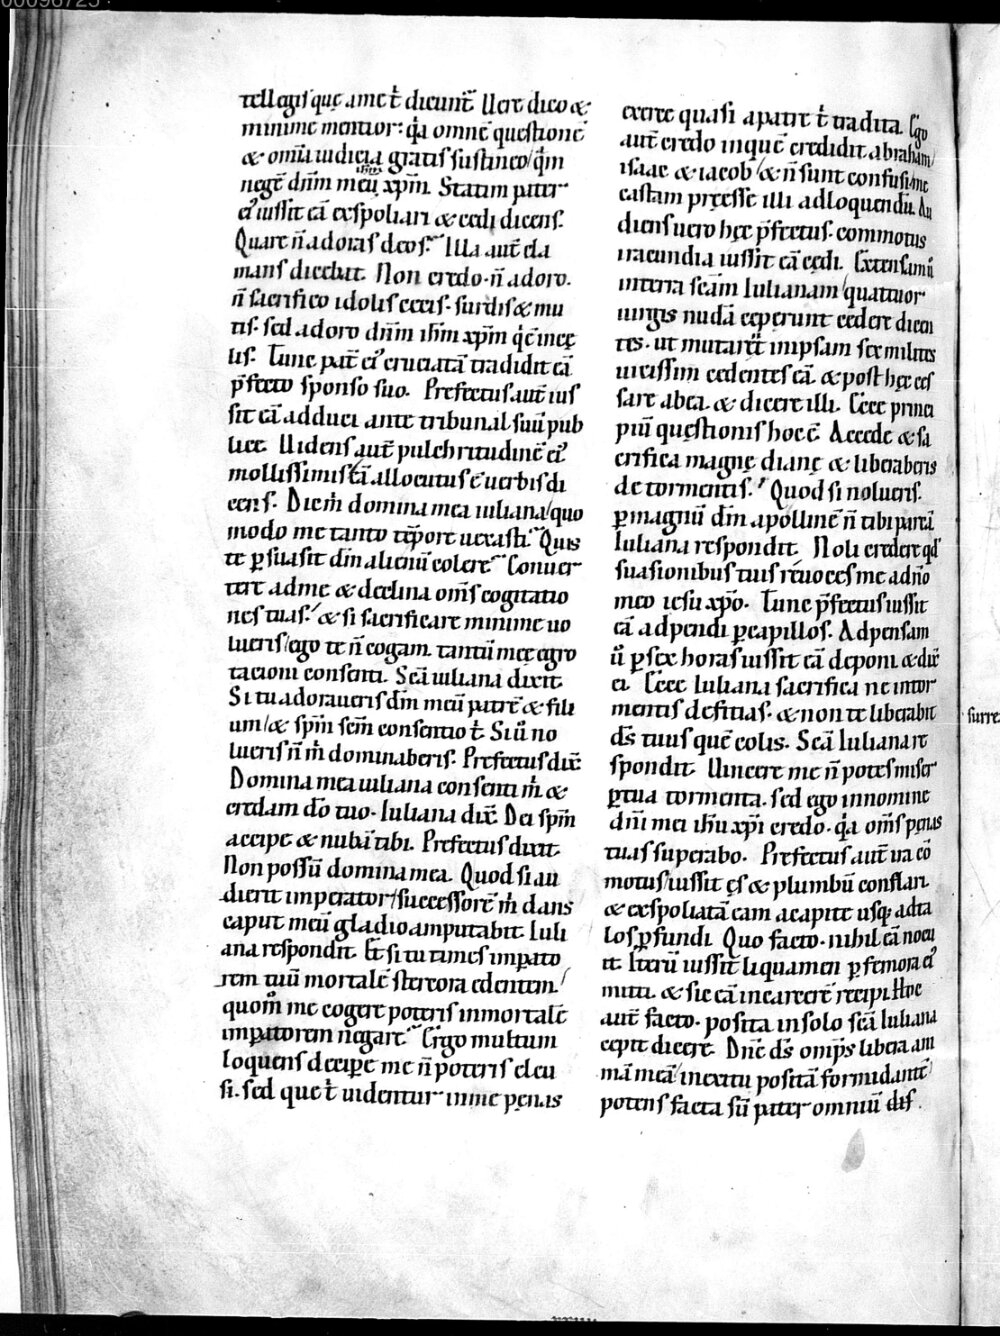 00096725
tellegis que ame t̄ dicunt̄ Uere dico &
minime mentior: q̄a omnē questionē
& om̄ia iudicia gratis sustineo / q̄m
negē dn̄m meū ih̄m xp̄m. Statim pater
ei' iussit eā exspoliari & cedi dicens.
Quare n̄ adoras deos. Illa aut̄ cla
mans dicebat. Non credo. n̄ adoro.
n̄ sacrifico idolis cecis. surdis & mu
tis. sed adoro dn̄m ih̄m xp̄m q̄ ē in cę
lis. Tunc pat̄ ei' cruciatā tradidit eā
p̄fecto sponso suo. Prefectus aut̄ ius
sit eā adduci ante tribunal suū pub
lice. Uidens aut̄ pulchritudinē ei'
mollissimis eā allocutus ē uerbis di
cens. Dic m̄ domina mea iuliana / quo
modo me tanto tēpore uexasti. Quis
te p̱suasit dm̄ alienū colere. Conuer
tere ad me & declina om̄s cogitatio
nes tuas. & si sacrificare minime uo
lueris / ego te n̄ cogam. tantū meę egro
tacioni consenti. Sc̄a iuliana dixit
Si tu adoraueris dm̄ meū patrē & fili
um / & sp̄m sc̄m consentio t̄. Si ū no
lueris n̄ m̄ dominaberis. Prefectus dix̄
Domina mea iuliana consenti m̄ &
credam dō tuo. Iuliana dix̄. Dei sp̄m
accipe & nubā tibi. Prefectus dixit
Non possū domina mea. Quod si au
dierit imperator / successorē m̄ dans
caput meū gladio amputabit. Iuli
ana respondit. Et si tu times imp̱ato
rem tuū mortalē stercora edentem /
quom̄ me cogere poteris inmortalē
imp̱atorem negare. Ergo multum
loquens decipe me n̄ poteris eleu
si. sed que t̄ uidentur in me pęnas
exere quasi a patre t̄ tradita. Ego
aut̄ credo in quē credidit abraham /
isaac & iacob / & n̄ sunt confusi / me
castam pręesse illi adloquendū. Au
diens uero hęc p̄fectus. commotus
iracundia iussit eā cędi. Extensam ū
in terra sc̄am Iulianam / quattuor
uirgis nudā ceperunt cedere dicen
tes. ut mutaret̄ in ipsam sex milites
uicissim cedentes eā. & post hęc ces
sare ab ea. & dicere illi. Ecce princi
piū quęstionis hoc ē. Accede & sa
crifica magnę dianę & liberaberis
de tormentis. Quod si nolueris.
p̱ magnū dm̄ apollinē n̄ tibi parcā
Iuliana respondit. Noli credere qd'
suasionibus tuis reuoces me a dn̄o
meo iesu xp̄o. Tunc p̄fectus iussit
eā adpendi p̱ capillos. Adpensam
ū p̱ sex horas iussit eā deponi & dix̄
ei. Ecce Iuliana sacrifica ne in tor
mentis deficias. & non te liberabit
ds̄ tuus quē colis. Sc̄a Iuliana re
spondit. Uincere me n̄ potes miser
p̱ tua tormenta. sed ego in nomine
dn̄i mei ih̄u xp̄i credo. q̄a om̄s penas
tuas superabo. Prefectus aut̄ ira cō
motus / iussit ęs & plumbū conflari
& exspoliatā eam a capite usq; ad ta
los p̱fundi. Quo facto. nihil eā nocu
it. Iterū iussit liquamen p̱ femora ei'
mitti. & sic eā in carcerē recipi. Hoc
aut̄ facto. posita in solo sc̄a Iuliana
cepit dicere. Dn̄e ds̄ omp̄s libera am
mā meā / in exitu positā formidantē /
potens facta sū pater omniū dis
surre